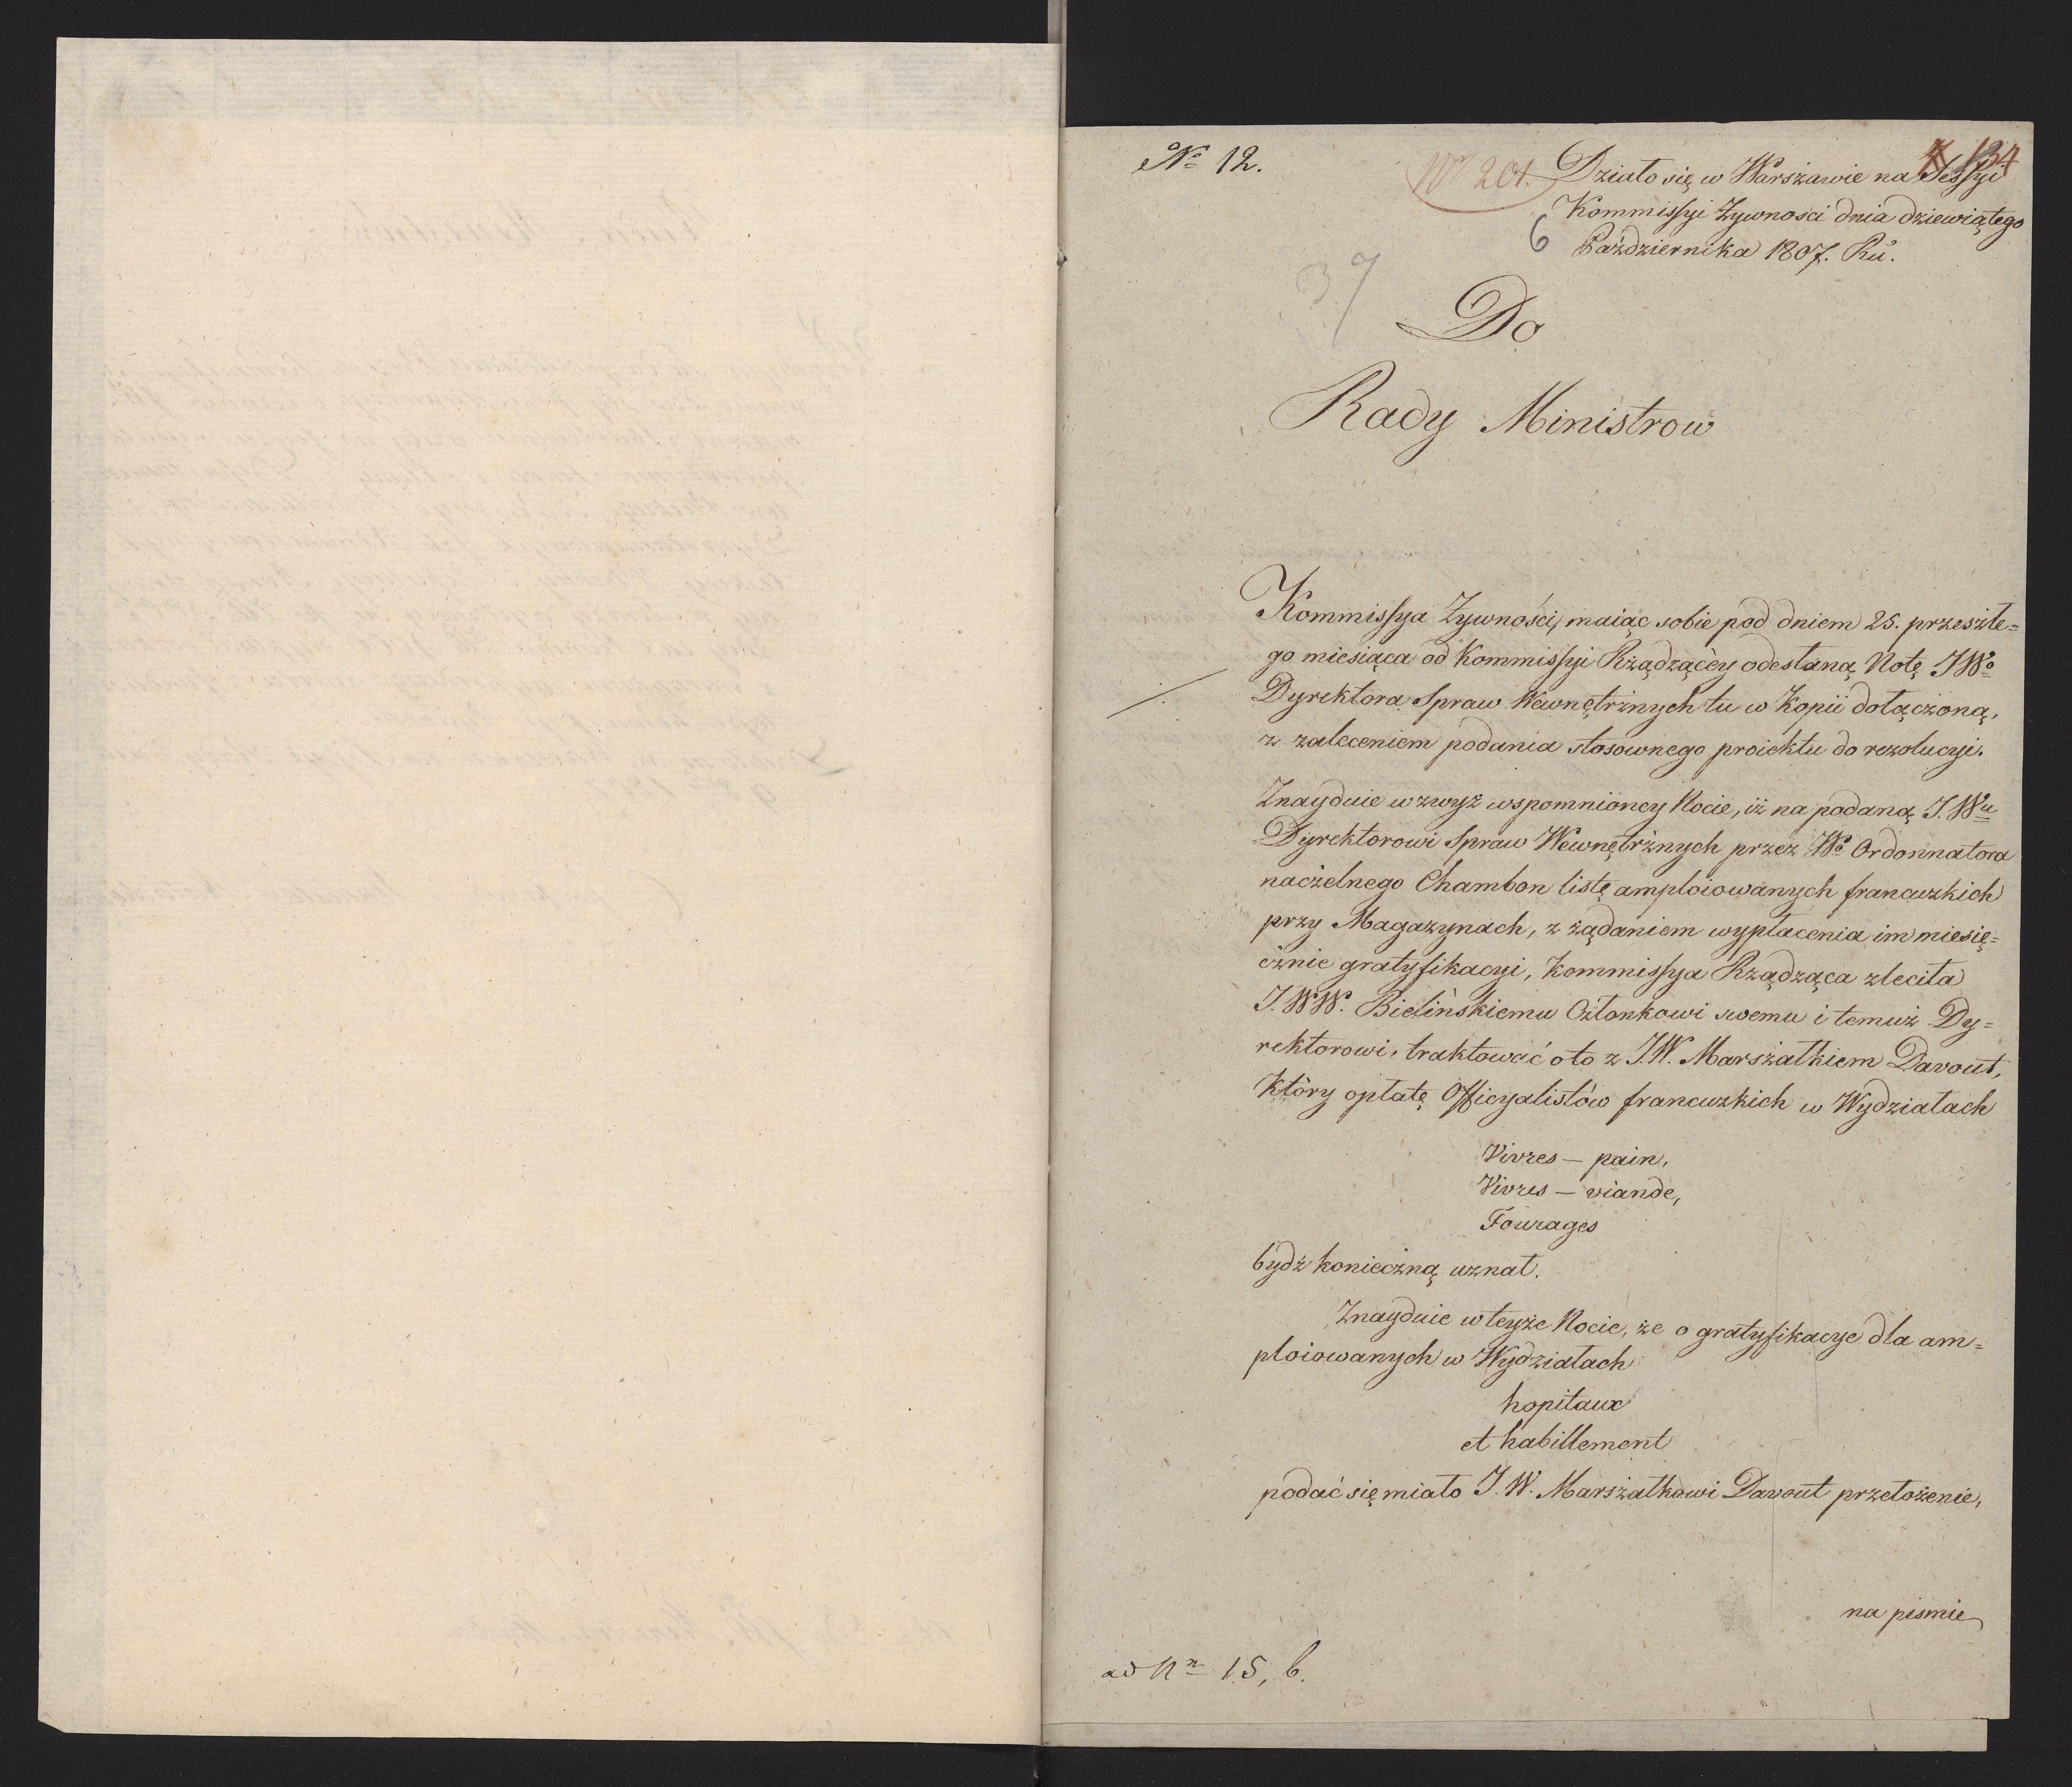 No 12.
Nr 201.
134
Działo się w Warszawie na Sessyi
Kommissyi Żywnosci dnia dziewiątego
6
Października 1807. Ru.
37
Do
Rady Ministrow
Kommissya Żywności, maiąc sobie pod dniem 25. przeszłe=
go miesiąca od Kommissyi Rządzącèy odesłaną Notę JWo
Dyrektora Spraw Wewnętrznych tu w Kopii dołączoną,
z zaleceniem podania stosownego proiektu do rezolucyi.
Znayduie w zwyż wspomnioney Nocie, iż na podaną J.Wu
Dyrektorowi Spraw Wewnętrznych przez Wo Ordonnatora
naczelnego Chambon listę amploiowanych francuzkich
przy Magazynach, z żądaniem wypłacenia im miesię=
cznie gratyfikacyi, Kommissya Rządząca zleciła
J.WW. Bielińskiemu Członkowi swemu i temuż Dy=
rektorowi, traktować o to z J.W. Marszałkiem Davout,
Który opłatę Officyalistów francuzkich w Wydziałach
Vivres – pain,
Vivres – viande,
Fourages
bydź konieczną uznał.
Znayduie w teyże Nocie, że o gratyfikacye dla am=
ploiowanych w Wydziałach
hopitaux
et habillement
podać się miało J.W. Marszałkowi Davout przełożenie,
na pismie
ad Nrn 15, b.